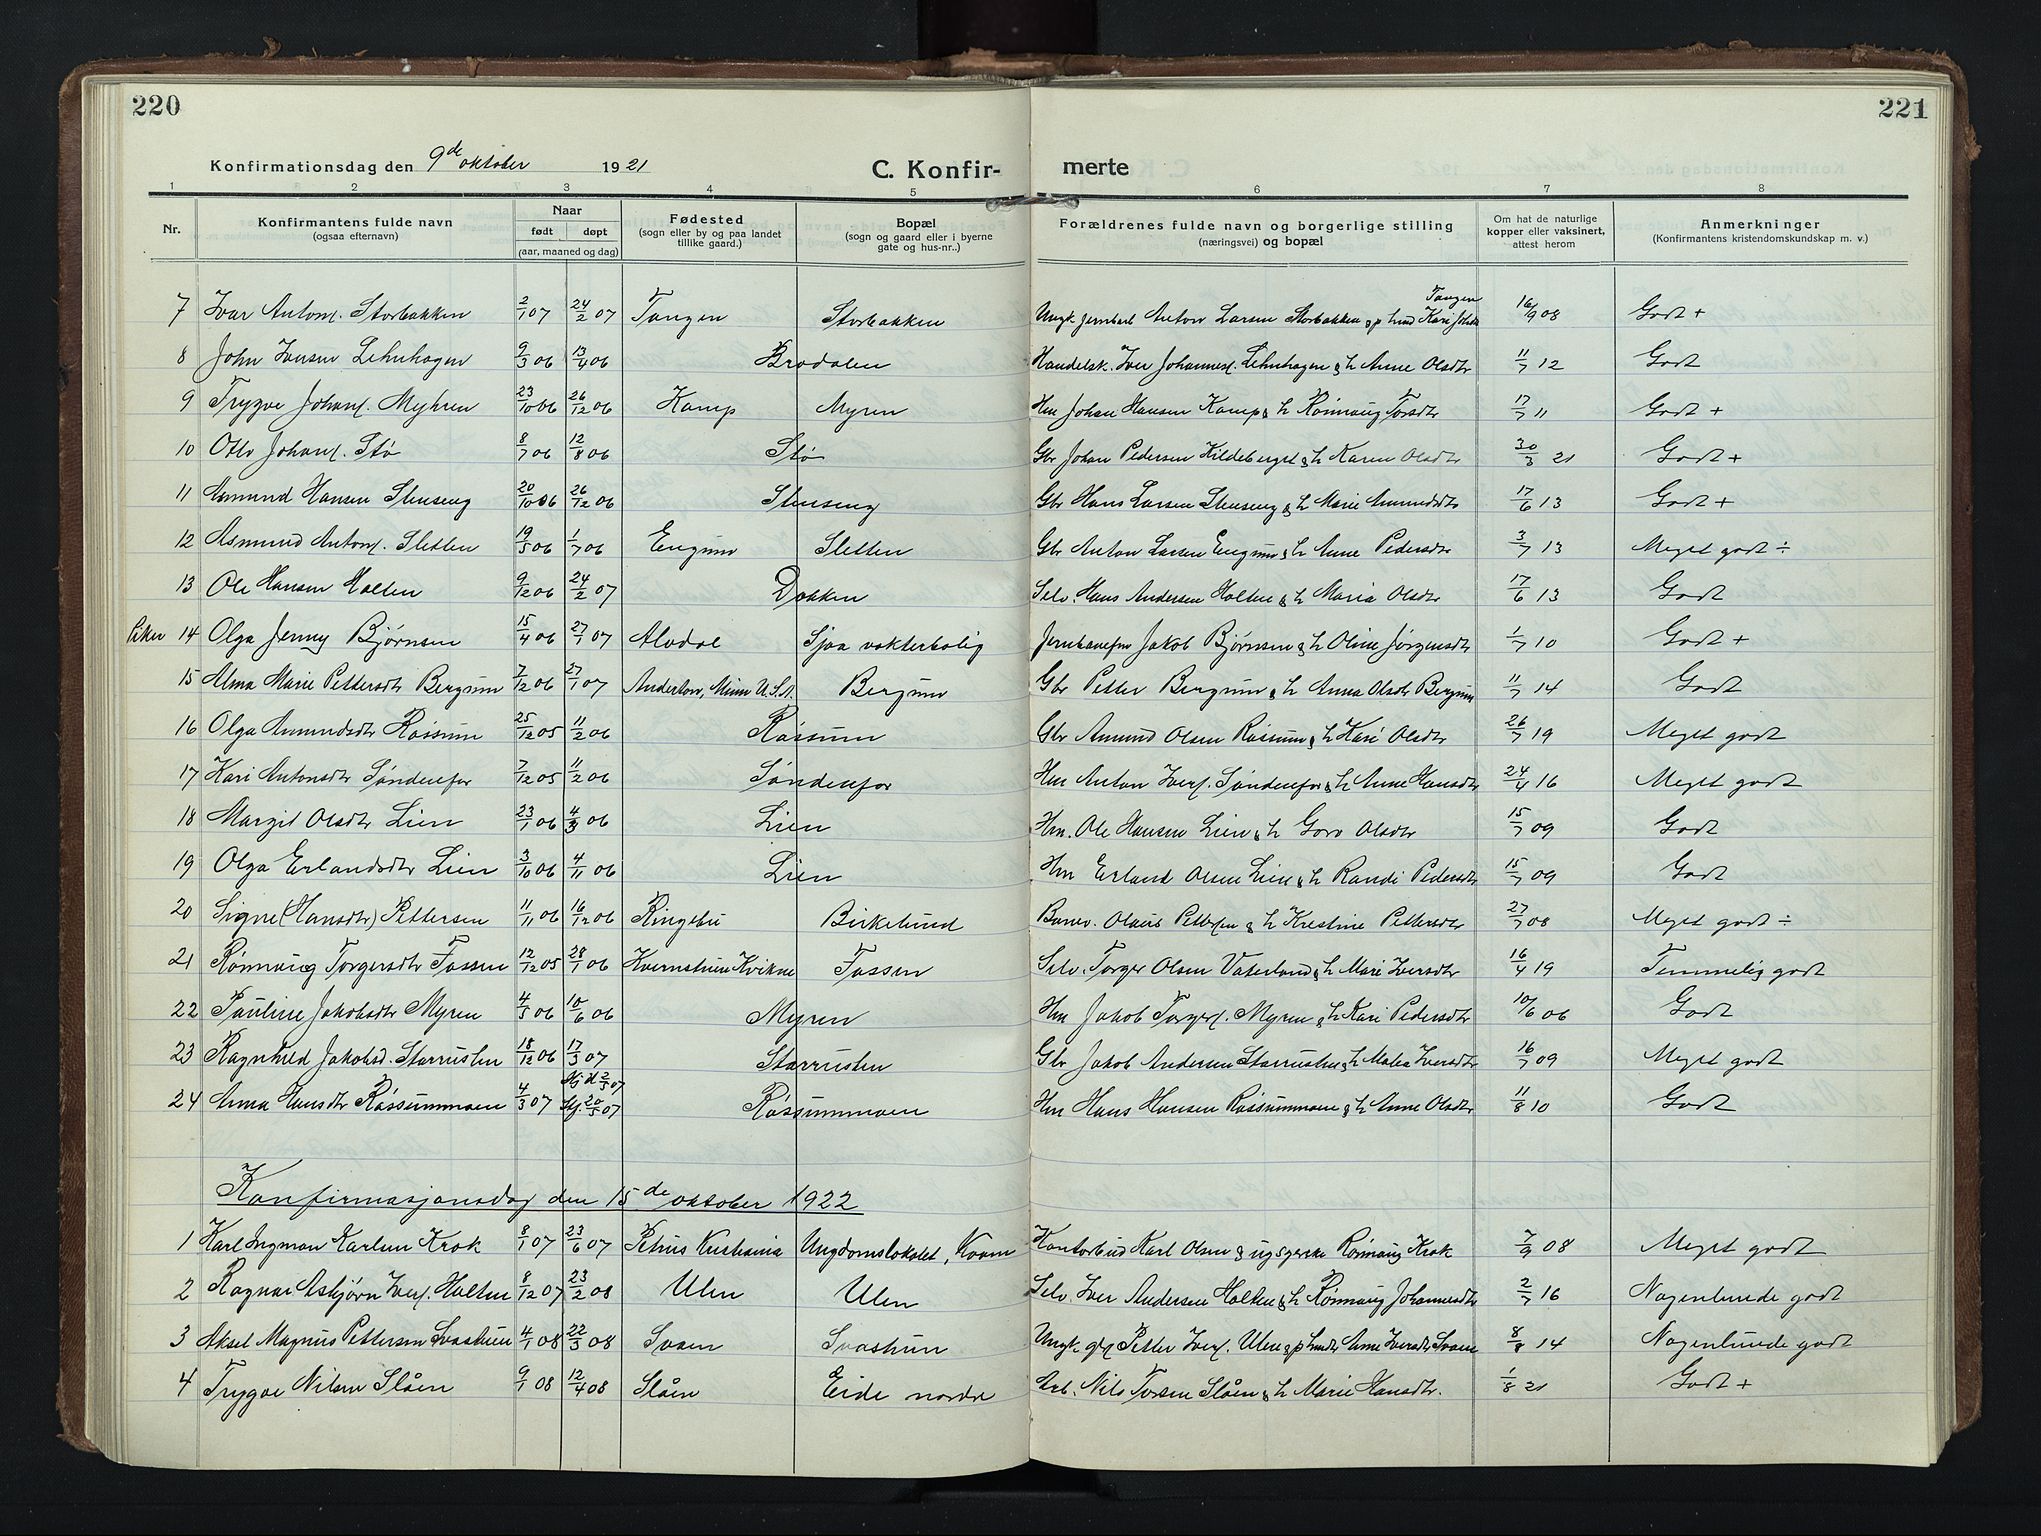 220
221
Konfirmationsdag den 9de oktober 1921 C. Konfir- merte
1 2 3 4 5 6 7 8
Nr. Konfirmantens fulde navn (ogsaa efternavn) Naar født døpt (aar, maaned og dag) Fødested (sogn eller by og paa landet tillike gaard.) Bopæl (sogn og gaard eller i byerne gate og hus-nr..) Forældrenes fulde navn og borgerlige stilling (næringsvei) og bopæl Om hat de naturlige kopper eller vaksinert, attest herom Anmerkninger (Konfirmantens kristendomskundskap m. v.)
7 Ivar Antonf. Storbakken 2/1 07 24/2 07 Tangen Storbakken Ungk. jernbarb Anton Larsen Storbakken & p Kari Tangen 16/9 08 Godt +
8 John Iversen Lehnhagen 9/3 06 13/4 06 Bradalen Handelsk. Iver Johannesf. Lehnhagen & h Anne Olsdtr 11/7 12 Godt
9 Trygve Johanf. Myhren 23/10 06 26/12 06 Kamp Myren Hm Johan Hansen Kamp & h Rønnaug Torsdtr 17/7 11 Godt +
10 Otto Johanf. Stø 8/7 06 12/8 06 Stø Gbr Johan Pedersen Kildeberget & h Karen Olsdtr 30/3 21 Godt +
11 Amund Hansen Stenseng 20/10 06 26/12 06 Stenseng Gbr Hans Larsen Stenseng & h Marie Amundsdtr 17/6 13 Godt +
12 Asmund Antonf. Sletten 19/5 06 1/7 06 Engum Sletten Gbr Anton Larsen Engum & h Anne Pedersdtr 3/7 13 Meget godt ÷
13 Ole Hansen Holten 9/12 06 24/2 07 Dokken Selv. Hans Andersen Holten & h Maria Olsdtr 17/6 13 Godt
Piker 14 Olga Jenny Bjørnsen 15/4 06 27/1 07 Alvdal Sjoa vokterbolig Jernbanefm Jakob Bjørnsen & h Oline Jørgensdtr 1/7 10 Godt +
15 Alma Marie Pettersdtr Bergum 7/12 06 27/1 07 Anderton, Minn U.St. Bergum Gbr Petter Bergum & h Anna Olsdtr Bergum 11/7 14 Godt
16 Olga Amundsdtr Råssum 25/12 05 11/2 06 Råssum Gbr Amund Olsen Råssum & h Kari Olsdtr 26/7 19 Meget godt
17 Kari Antonsdtr Søndenfor 7/12 05 11/2 06 Søndenfor Hm Anton Iverf. Søndenfor & h Anne Hansdtr 24/4 16 Meget godt
18 Margit Olsdtr Lien 23/1 06 4/3 06 Lien Hm. Ole Hansen Lien & h Goro Olsdtr 15/7 09 Godt
19 Olga Erlandsdtr Lien 3/10 06 4/11 06 Lien Hm Erland Olsen Lien & h Randi Pedersdtr 15/7 09 Godt
20 Signe (Hansdtr) Pettersen 11/11 06 16/12 06 Ringebu Birkelund Banev. Olaus Pettersen & h Krestine Pettersdtr 27/7 08 Meget godt ÷
21 Rønnaug Torgersdtr Fossen 12/12 05 28/1 06 Kvernstuen Kvikne Fossen Selv. Torger Olsen Vaterland & h Mari Iversdtr 16/4 19 Temmelig godt
22 Pauline Jakobsdtr Myren 4/5 06 10/6 06 Myren Hm Jakob Torgerf. Myren & h Kari Pedersdtr 10/6 06 Godt
23 Ragnhild Jakobsd. Starrusten 18/12 06 17/3 07 Starrusten Gbr Jakob Andersen Starrusten & h Malea Iversdtr 16/7 09 Meget godt
24 Anna Hansdtr Råssummoen 4/3 07 Hj. d 2/5 07 St. 20/5 07 Råssummoen Hm Hans Hansen Råssummoen & h Anne Olsdtr 11/8 10 Godt
Konfirmasjonsdag den 15de oktober 1922
1 Karl Ingman Karlsen Krok 8/1 07 23/6 07 Petrus Kristiania Ungdomslokalet, Kvam Kontorbud Karl Olsen & ugsgerske Rønnaug Krok 7/9 08 Meget godt
2 Ragnar Asbjørn Iverf. Holten 8/12 07 23/2 08 Ulen Ulen Selv. Iver Andersen Holten & h Rønnaug Johannesdtr 2/7 16 Nogenlunde godt
3 Aksel Magnus Pettersen Svastuen 4/1 08 22/3 08 Svaen Svastuen Ungk. Petter Iverf. Ulen & p Anne Iversdtr Svaen 8/8 14 Nogenlunde godt
4 Trygve Nilsen Slåen 9/1 08 12/4 08 Slåen Eide nordre Arb. Nils Torsen Slåen & h Marie Hansdtr. 1/8 21 Godt +